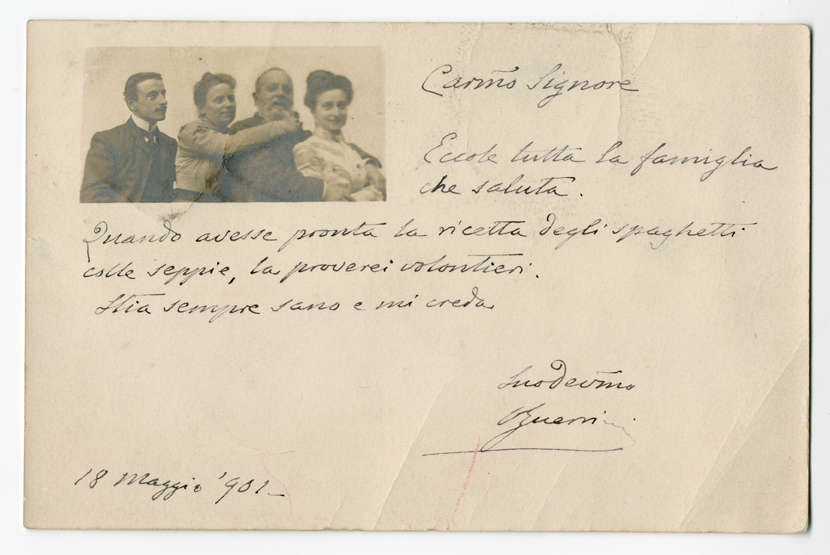 Carmo Signore
Eccole tutta la famiglia
che saluta.
Quando avesse pronta la ricetta degli spaghetti
colle seppie, la proverei volontieri.
Stia sempre sano e mi creda
Suo devmo
OGuerrini
18 Maggio '901_